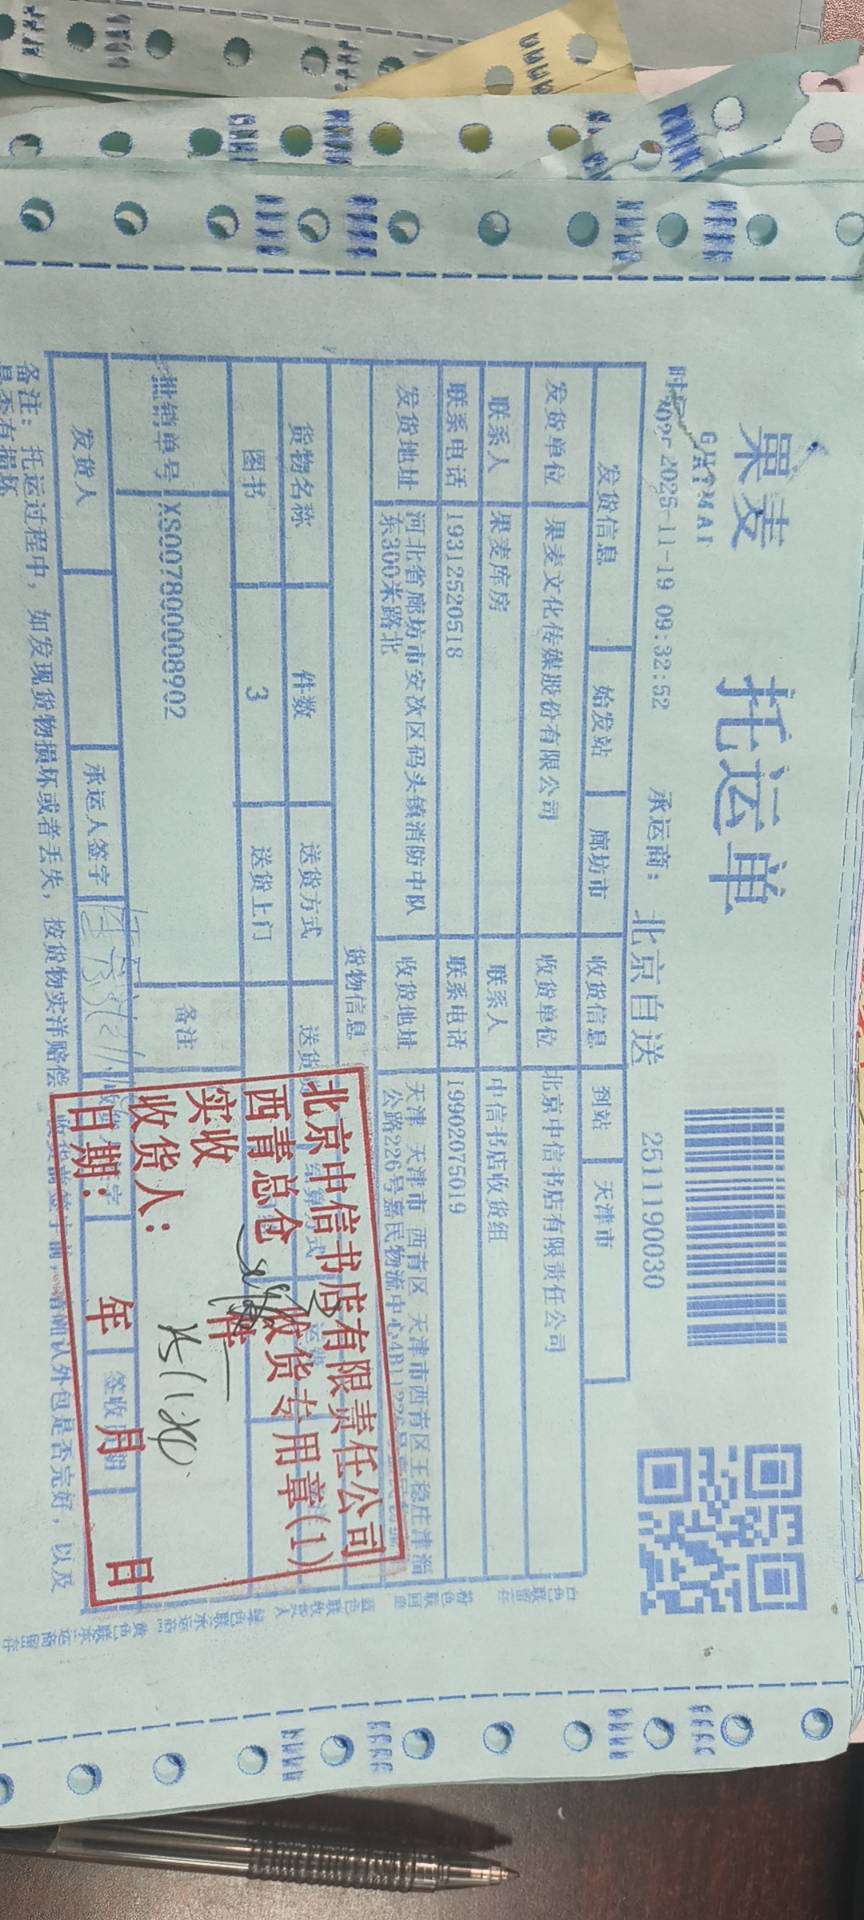 果麦
GUOMAI
托运单
2025-11-19 09:32:52
承运商：
北京自送
2511190030
发货信息
始发站
廊坊市
收货信息
到站
天津市
发货单位
果麦文化传媒股份有限公司
收货单位
北京中信书店有限责任公司
联系人
果麦库房
联系人
中信书店收货组
联系电话
19312520518
联系电话
19902075019
发货地址
河北省廊坊市安次区码头镇消防中队
东300米路北
收货地址
天津 天津市 西青区 天津市西青区王稳庄津淄
公路226号嘉民物流中心4B1
货物信息
货物名称
件数
送货方式
图书
3
送货上门
批销单号
XS007800008902
备注
发货人
承运人签字
备注：托运过程中，如发现货物损坏或者丢失，按货物实洋赔偿
是否有损坏
北京中信书店有限责任公司
西青总仓
收货专用章(1)
实收
件
收货人：
日期：
年
月
日
25.11.20